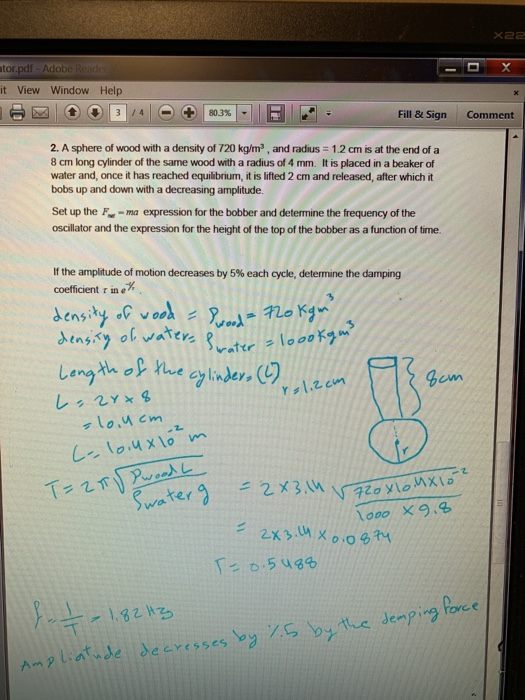 X22
ator.pdf - Adobe Reader
X
it View Window Help
x
3 / 4
80.3%
Fill & Sign
Comment
2. A sphere of wood with a density of 720 kg/m³, and radius = 1.2 cm is at the end of a
8 cm long cylinder of the same wood with a radius of 4 mm. It is placed in a beaker of
water and, once it has reached equilibrium, it is lifted 2 cm and released, after which it
bobs up and down with a decreasing amplitude.
Set up the F = ma expression for the bobber and determine the frequency of the
oscillator and the expression for the height of the top of the bobber as a function of time.
If the amplitude of motion decreases by 5% each cycle, determine the damping
coefficient τ in
density of wood = ρwood = 720 Kgm³
density of water = ρwater = 1000 Kgm³
Length of the cylinder = (L)
r = 1.2cm
8cm
L = 2r x 8
= 10.4 cm
L = 10.4 x 10⁻² m
r
T = 2π √ρwood L / ρwater g
= 2 x 3.14 √720 x 10.4 x 10⁻² / 1000 x 9.8
= 2x3.14 x 0.0874
T = 0.5488
f = 1/T = 1.82 Hz
Ampliatude decresses by %5 by the demping force